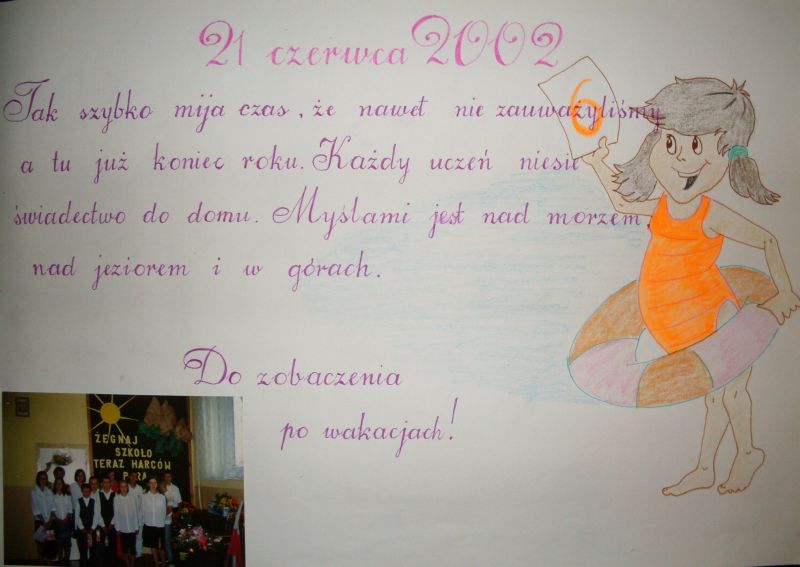 21 czerwca 2002
Tak szybko mija czas, że nawet nie zauważyliśmy
a tu już koniec roku. Każdy uczeń niesie
świadectwo do domu. Myślami jest nad morzem,
nad jeziorem i w górach.
Do zobaczenia
po wakacjach!
6
ŻEGNAJ
SZKOŁO
TERAZ HARCÓW
PORA